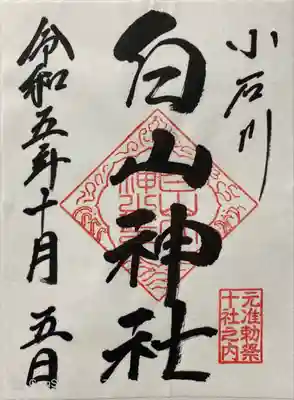 小石川
白山神社
元准勅祭
十社之内
令和五年十月五日